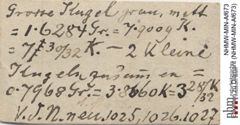 Grosse Kugel grau, matt
= 1.6284 Gr. = 7.9009 K.
= 7 K. — 2 kleine
Kugeln zusam̄en =
0.7968 Gr. = 3.8660 K = 3 28/32
V.J.N. neu. 1025, 1026, 1027
nhm
NHMW-MIN-A/673
(NHMW-MIN-A/673)